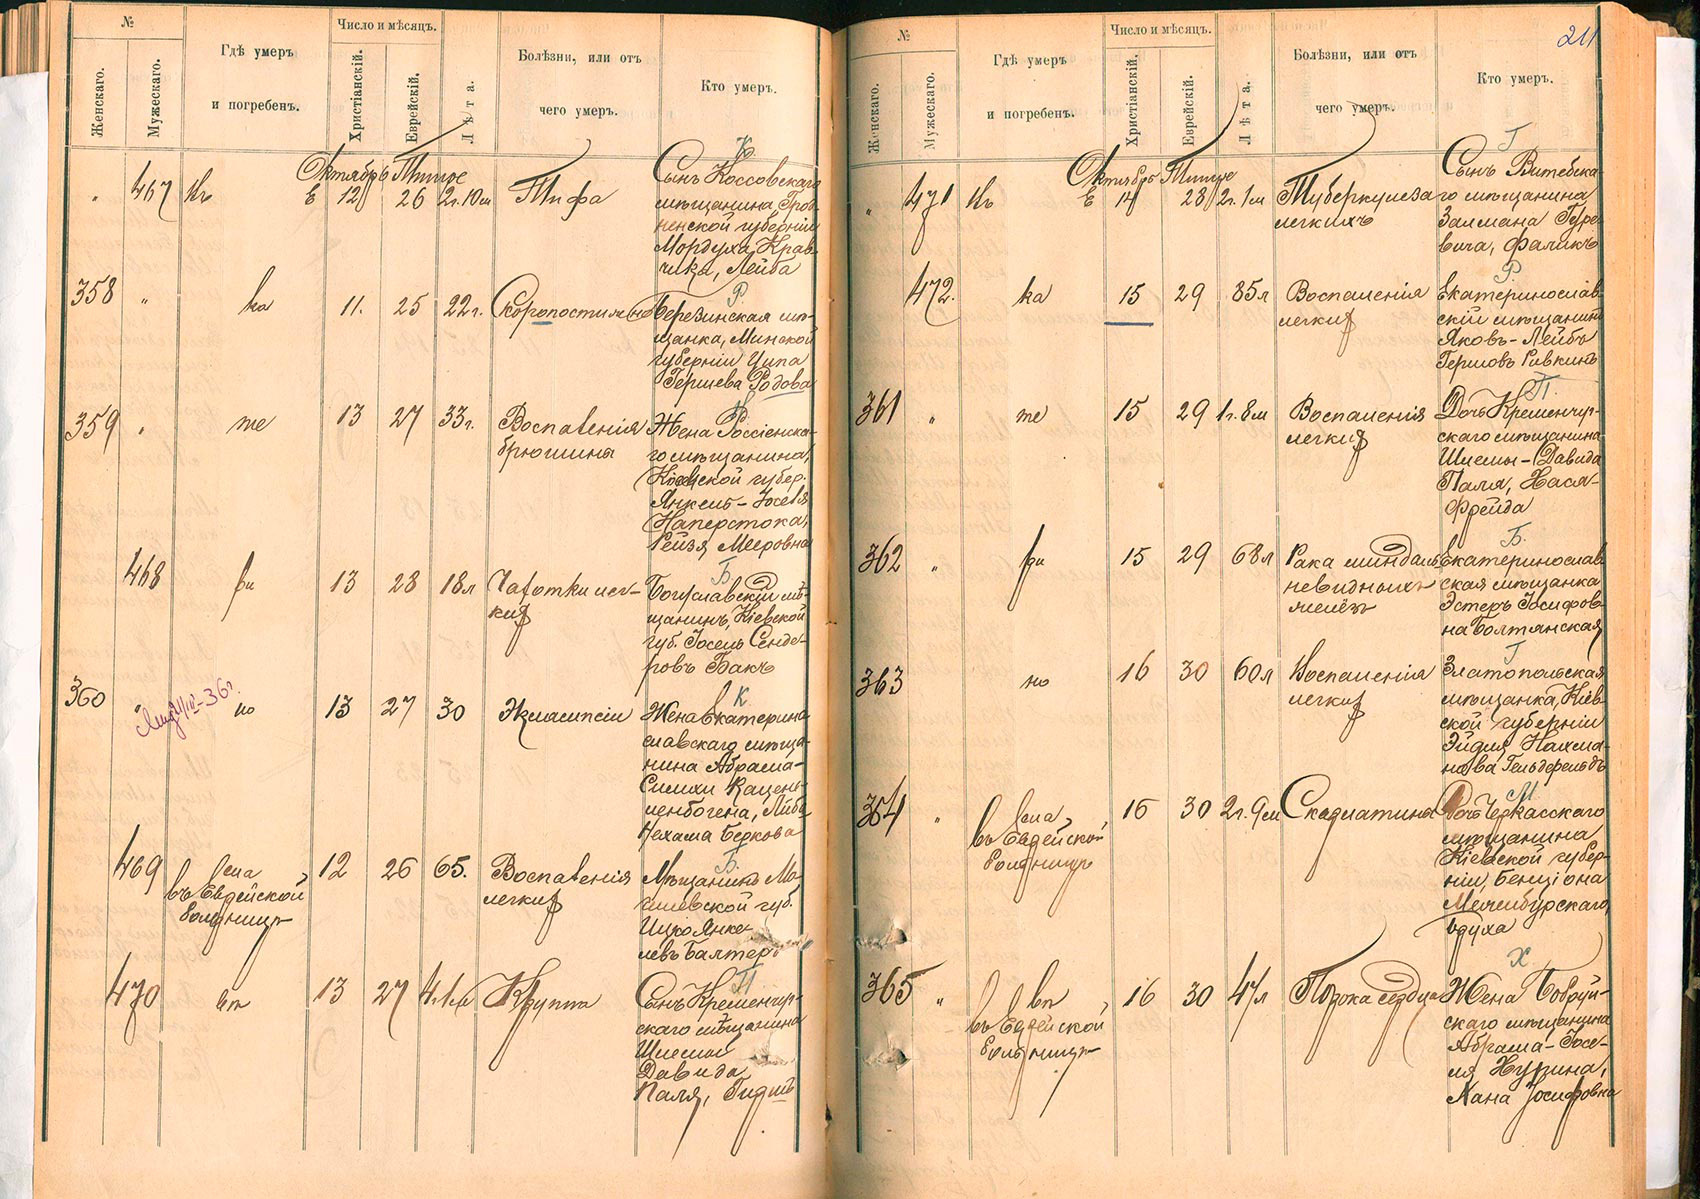 №
Женскаго.
Мужескаго.
Гдѣ умеръ
и погребенъ.
Число и мѣсяцъ.
Христіанскій.
Еврейскій.
Лѣта.
Болѣзни, или отъ
чего умеръ.
Кто умеръ.
Октябрь Тишре
К
" 467 12 26 2г. 10м Тифа
Сынъ Коссовскаго
мѣщанина, Грод-
ненской губерніи
Мордуха Крав-
чика, Лейба
Р.
358 " 11. 25 22г. Скоропостижно
Березинская мѣ-
щанка, Минской
губерніи Ципа
Гершева Родова
359 " 13 27 33г. Воспаленія
брюшины
Жена Россіенска-
го мѣщанина,
Ковенской губер.
Янкель-Іосель
Наперстока,
Рейзя Мееровна
Б.
468 13 28 18л Чахотки лег-
кихъ
Богуславскій мѣ-
щанинъ, Кіевской
губ. Іосель Сенде-
ровъ Бакъ
К
360 " 13 27 30 Эклампсіи
Жена Екатерино-
славскаго мѣща-
нина Абрама-
Симхи Кацене-
ленбогена, Либа
Нехама Беркова
Б.
469 въ Еврейской
больницѣ
12 26 65. Воспаленія
легкихъ
Мѣщанинъ Мо-
гилевской губ.
Ицко Янке-
левъ Балтеръ
П
470 13 27 4г. 1м Круппа
Сынъ Кременчуг-
скаго мѣщанина
Шлемы
Давида
Паля, Гидить
211
№
Женскаго.
Мужескаго.
Гдѣ умеръ
и погребенъ.
Число и мѣсяцъ.
Христіанскій.
Еврейскій
Лѣта.
Болѣзни, или отъ
чего умеръ.
Кто умеръ.
Октябрь Тишре
Г
" 471 14 28 2г. 1м Туберкулеза
легкихъ
Сынъ Витебска-
го мѣщанина
Залмана Гуре-
вича, Фаликъ
Р.
472. 15 29 85л Воспаленія
легкихъ
Екатеринослав-
скій мѣщанинъ
Яковъ-Лейбъ
Гершовъ Ривкинъ
П.
361 " 15 29 1г. 8м Воспаленія
легкихъ
Дочь Кременчуг-
скаго мѣщанина
Шлемы-Давида
Паля, Хася-
Фрейда
Б.
362 " 15 29 68л Рака миндаль
невидныхъ
желёзъ
Екатеринослав-
ская мѣщанка
Эстеръ Іосифов-
на Болтянская
Г
363 16 30 60л Воспаленія
легкихъ
Златопольская
мѣщанка, Кіев-
ской губерніи
Эйдля Нахма-
нова Гельдфельдъ
М
364 " въ Еврейской
больницѣ
16 30 2г. 9м Скарлатина
Дочь Черкасскаго
мѣщанина
Кіевской губер-
ніи, Бенціона
Меченбурскаго,
Бруха
Х
365 " въ Еврейской
больницѣ
16 30 47л Порока сердца
Жена Бобруй-
скаго мѣщанина
Абрама-Іосе-
ля Хузина,
Хана Іосифовна